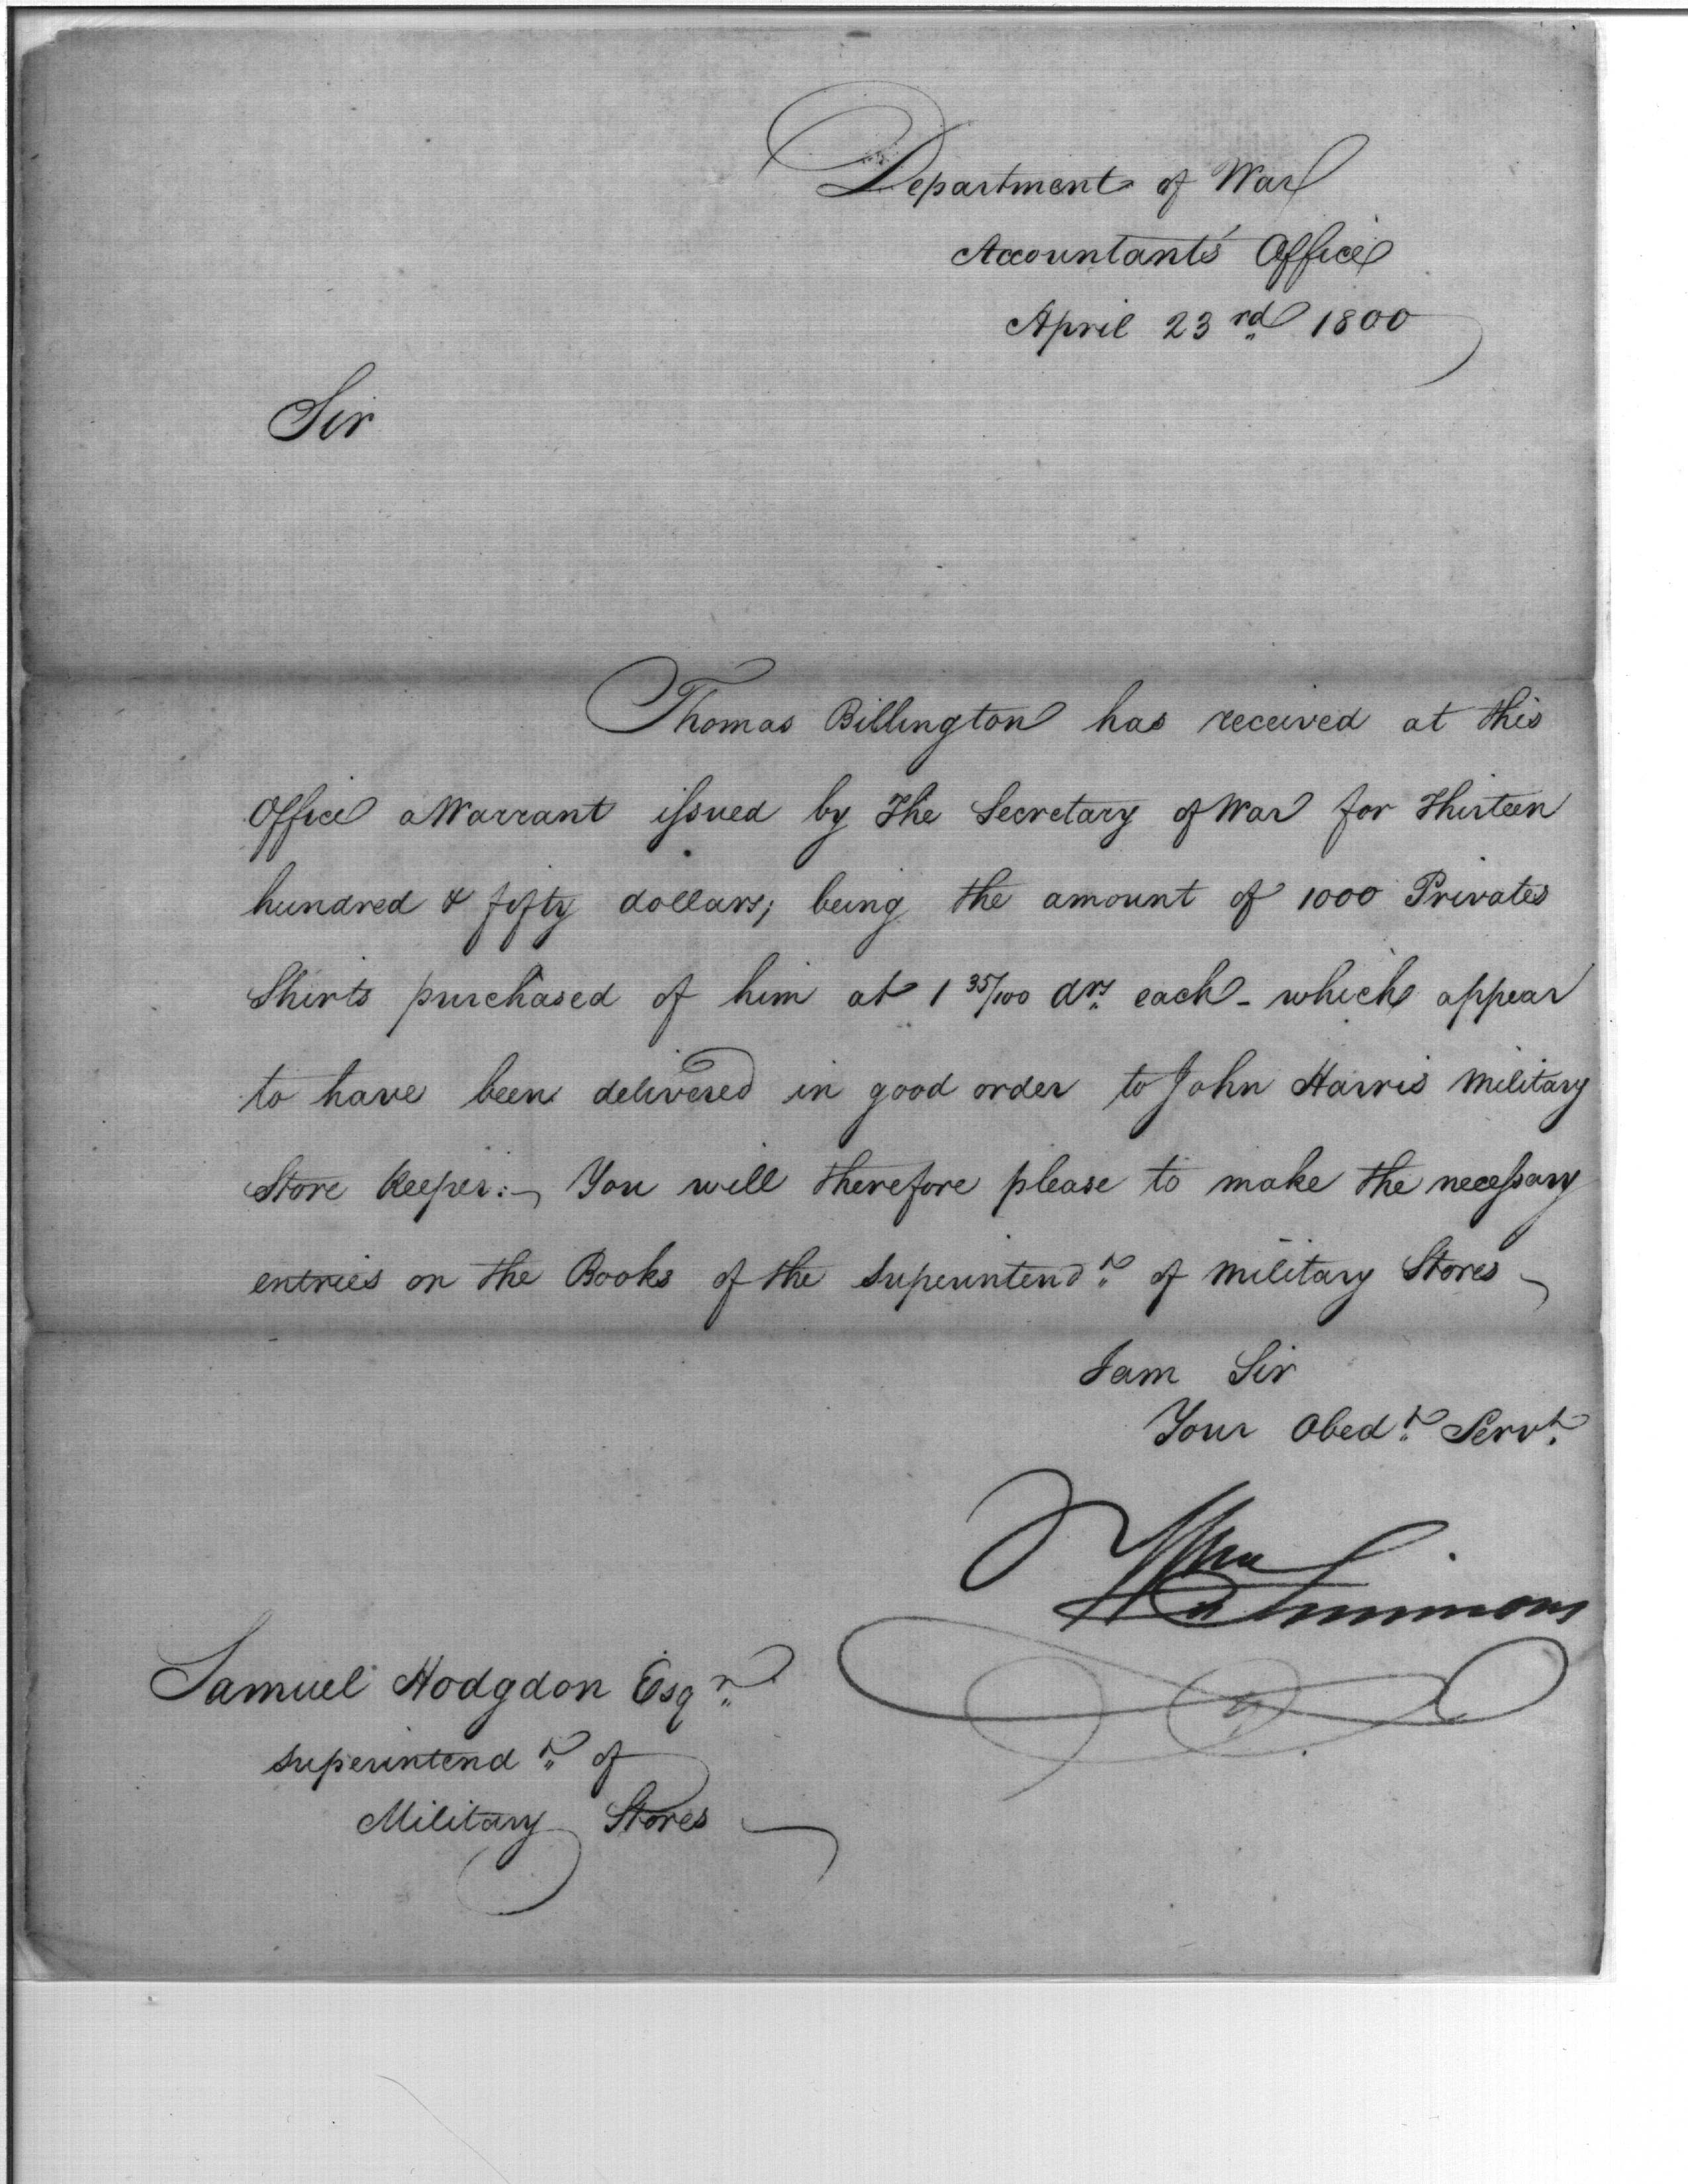 Department of War
Accountant's Office
April 23rd 1800
Sir
Thomas Billington has received at this
Office a Warrant issued by The Secretary of War for Thirteen
hundred & fifty dollars; being the amount of 1000 Privates
Shirts purchased of him at 1 35/100 drs each - which appear
to have been delivered in good order to John Harris Military
Store Keeper:- You will therefore please to make the necessary
entries on the Books of the Superintendt of Military Stores -
I am Sir
Your Obedt Servt
Wm Simmons
Samuel Hodgdon Esqr
Superintendt of
Military Stores -